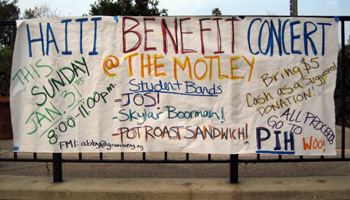 HAITI BENEFIT CONCERT
@ THE MOTLEY
THIS
SUNDAY
JAN 31st
8:00-11:00pm
Student Bands
-JOS!
-Skylar Boorman!
-POT ROAST SANDWICH!
Bring $5
Cash as a Suggested
DONATION!
ALL PROCEEDS
GO TO
PIH WOO!
FMI: